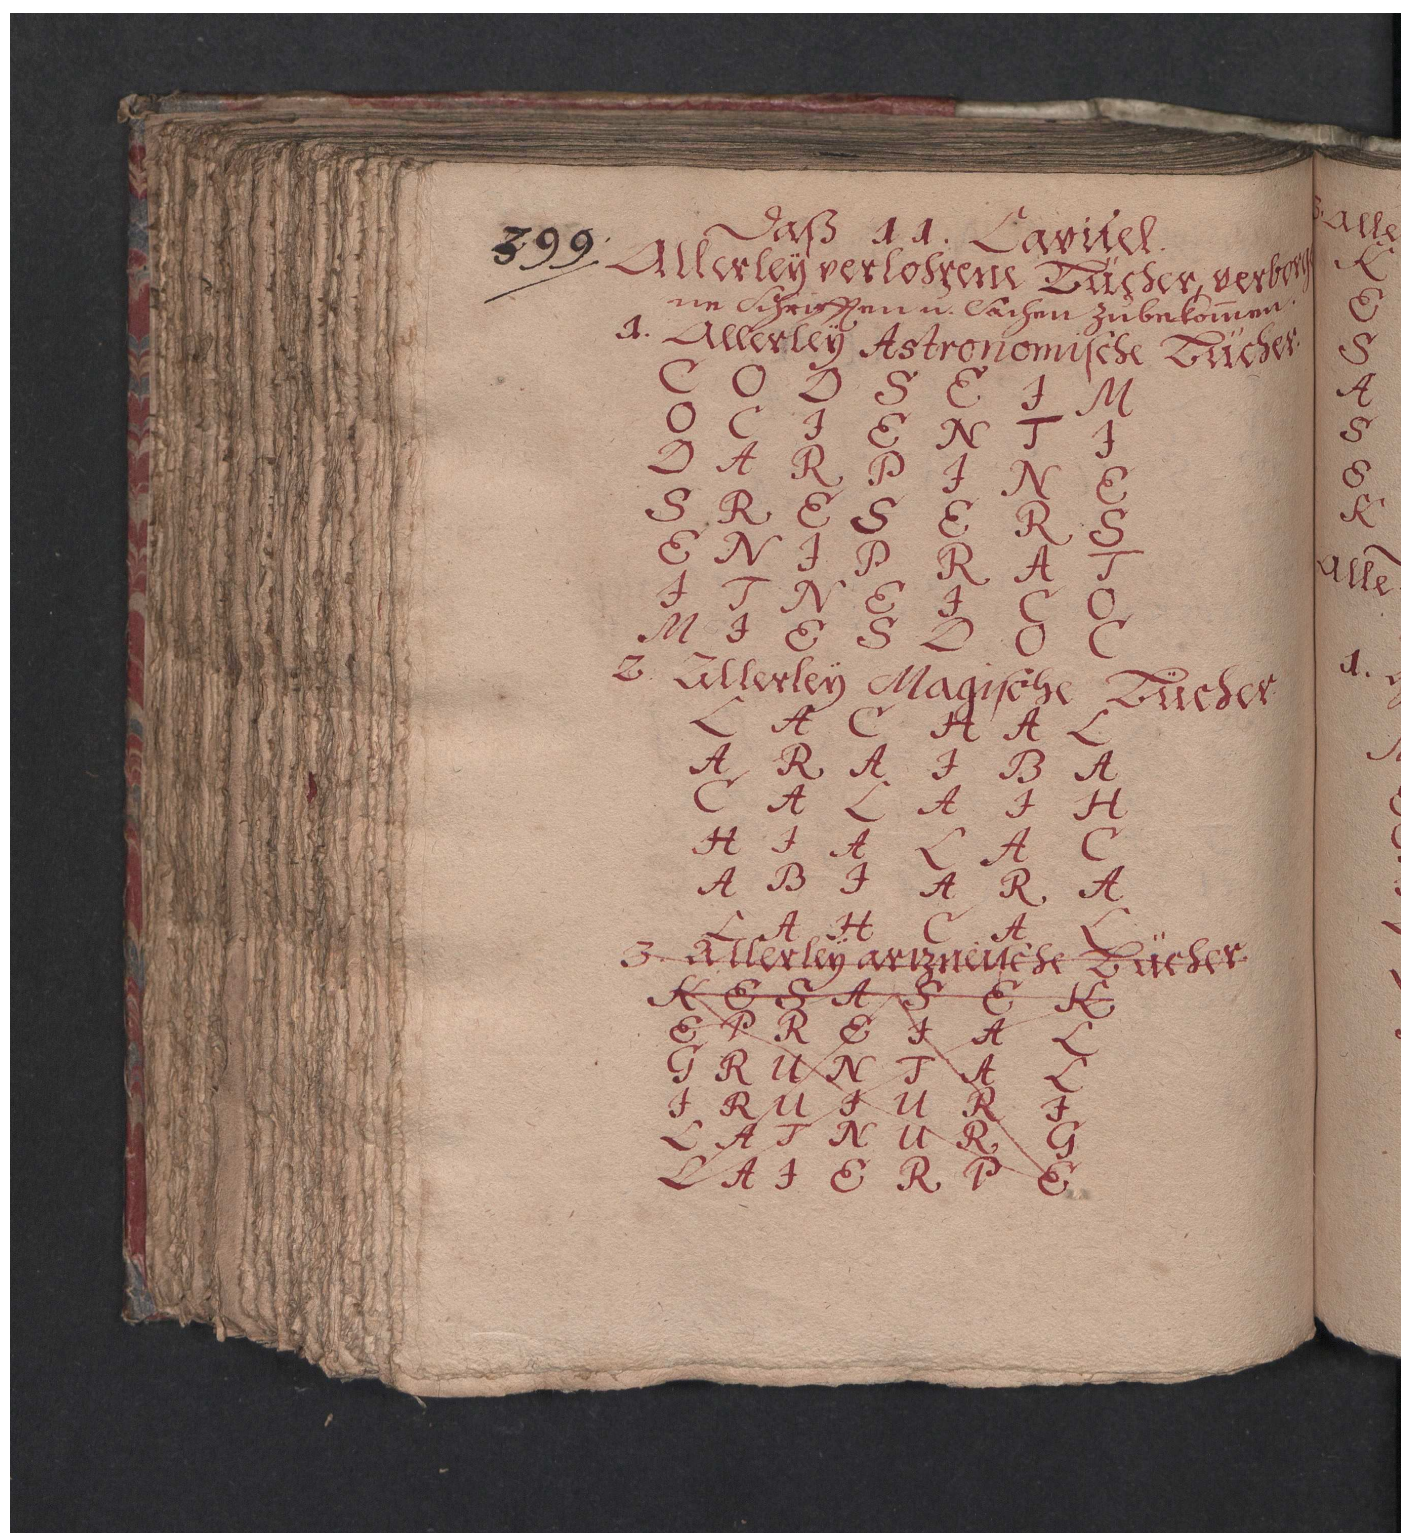 399.
Daß 11. Capitel.
Allerleÿ verlohrene Bücher, verborge
ne Schrifften u. Sachen zubekom̄en.
1. Allerleÿ Astronomische Bücher.
C O D S E I M
O C I E N T I
D A R P I N E
S R E S E R S
E N I P R A T
I T N E I C O
M I E S D O C
2. Allerleÿ Magische Bücher
L A C H A L
A R A I B A
C A L A I H
H I A L A C
A B I A R A
L A H C A L
3. Allerleÿ artzneische Bücher.
K E S A S E K
E P R E I A L
G R U N T A L
I R U I U R I
L A T N U R G
L A I E R P E
3. Alle
K
E
S
A
S
E
K
Alle
1.